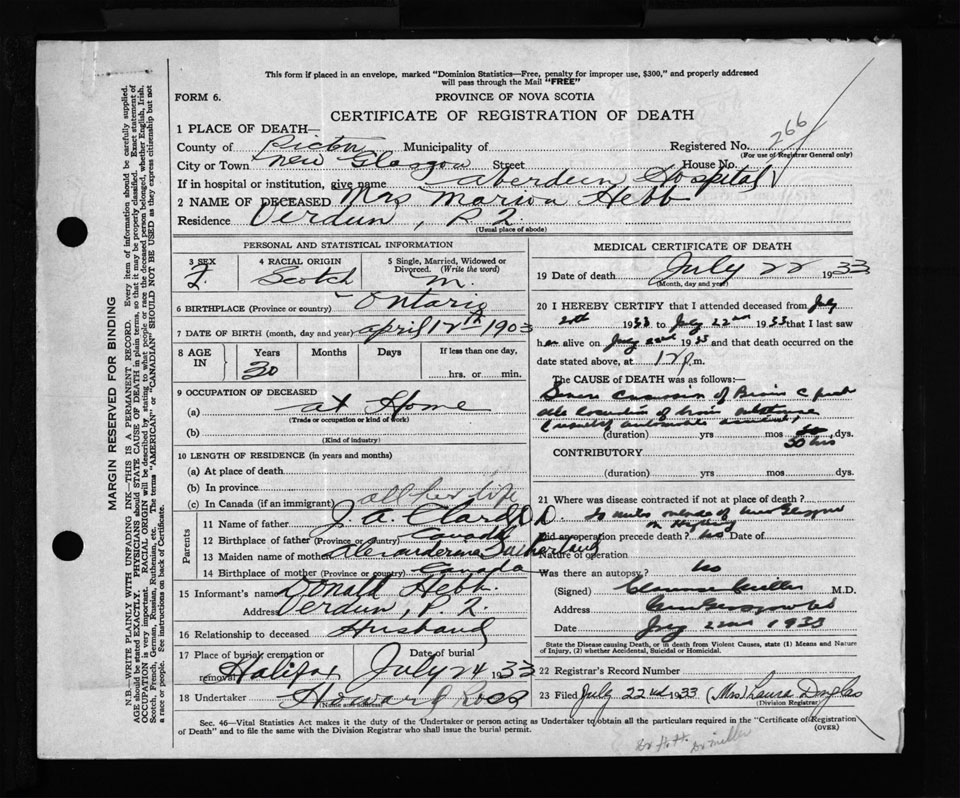 This form if placed in an envelope, marked "Dominion Statistics—Free, penalty for improper use, $300," and properly addressed
will pass through the Mail "FREE"
FORM 6.
PROVINCE OF NOVA SCOTIA
CERTIFICATE OF REGISTRATION OF DEATH
266
1 PLACE OF DEATH—
County of Pictou Municipality of Registered No.
(For use of Registrar General only)
City or Town New Glasgow Street House No.
If in hospital or institution, give name Aberdeen Hospital
2 NAME OF DECEASED Mrs Marion Hebb
Residence Verdun, P.Q.
(Usual place of abode)
PERSONAL AND STATISTICAL INFORMATION
3 SEX 4 RACIAL ORIGIN 5 Single, Married, Widowed or
Divorced. (Write the word)
F. Scotch m.
6 BIRTHPLACE (Province or country) Ontario
7 DATE OF BIRTH (month, day and year) april 12th 1903
8 AGE IN Years Months Days If less than one day,
30 hrs. or min.
9 OCCUPATION OF DECEASED
(a) at Home
(Trade or occupation or kind of work)
(b)
(Kind of industry)
10 LENGTH OF RESIDENCE (in years and months)
(a) At place of death
(b) In province
(c) In Canada (if an immigrant) all her life
Parents
11 Name of father J. A. Clark D.D
12 Birthplace of father (Province or country) Canada
13 Maiden name of mother Alexanderina Sutherland
14 Birthplace of mother (Province or country) Canada
15 Informant's name Donald Hebb
Address Verdun, P.Q.
16 Relationship to deceased Husband
17 Place of burial, cremation or removal Date of burial
Halifax July 24 1933
18 Undertaker Howard Ross
(Name and address)
MEDICAL CERTIFICATE OF DEATH
19 Date of death July 22 1933
(Month, day and year)
20 I HEREBY CERTIFY that I attended deceased from July
20th 1933 to July 22nd 1933 that I last saw
her alive on July 22nd 1933 and that death occurred on the
date stated above, at 12 p.m.
The CAUSE of DEATH was as follows:—
Severe Concussion of Brain
automobile accident
(duration) yrs mos dys.
30 hrs
CONTRIBUTORY
(duration) yrs mos dys.
21 Where was disease contracted if not at place of death?
miles outside of New Glasgow
on Highway
Did an operation precede death? no Date of
Nature of operation
Was there an autopsy? no
(Signed) Clarence Miller M.D.
Address New Glasgow N.S.
Date July 22nd 1933
State the Disease causing Death, or in death from Violent Causes, state (1) Means and Nature
of Injury, (2) whether Accidental, Suicidal or Homicidal.
22 Registrar's Record Number
23 Filed July 22nd 1933 (Mrs) Laura Douglas
(Division Registrar)
Sec. 46—Vital Statistics Act makes it the duty of the Undertaker or person acting as Undertaker to obtain all the particulars required in the "Certificate of Registration
of Death" and to file the same with the Division Registrar who shall issue the burial permit.
(OVER)
Dr Miller
MARGIN RESERVED FOR BINDING
N.B.—WRITE PLAINLY WITH UNFADING INK—THIS IS A PERMANENT RECORD. Every item of information should be carefully supplied.
AGE should be stated EXACTLY. PHYSICIANS should STATE CAUSE OF DEATH in plain terms, so that it may be properly classified. Exact statement of
OCCUPATION is very important. RACIAL ORIGIN will be described by stating to what people or race the deceased person belonged, whether English, Irish,
Scotch, French, German, Russian, Ruthenian, etc. The terms "AMERICAN" or "CANADIAN" SHOULD NOT BE USED as they express citizenship but not
a race or people. See instructions on back of Certificate.